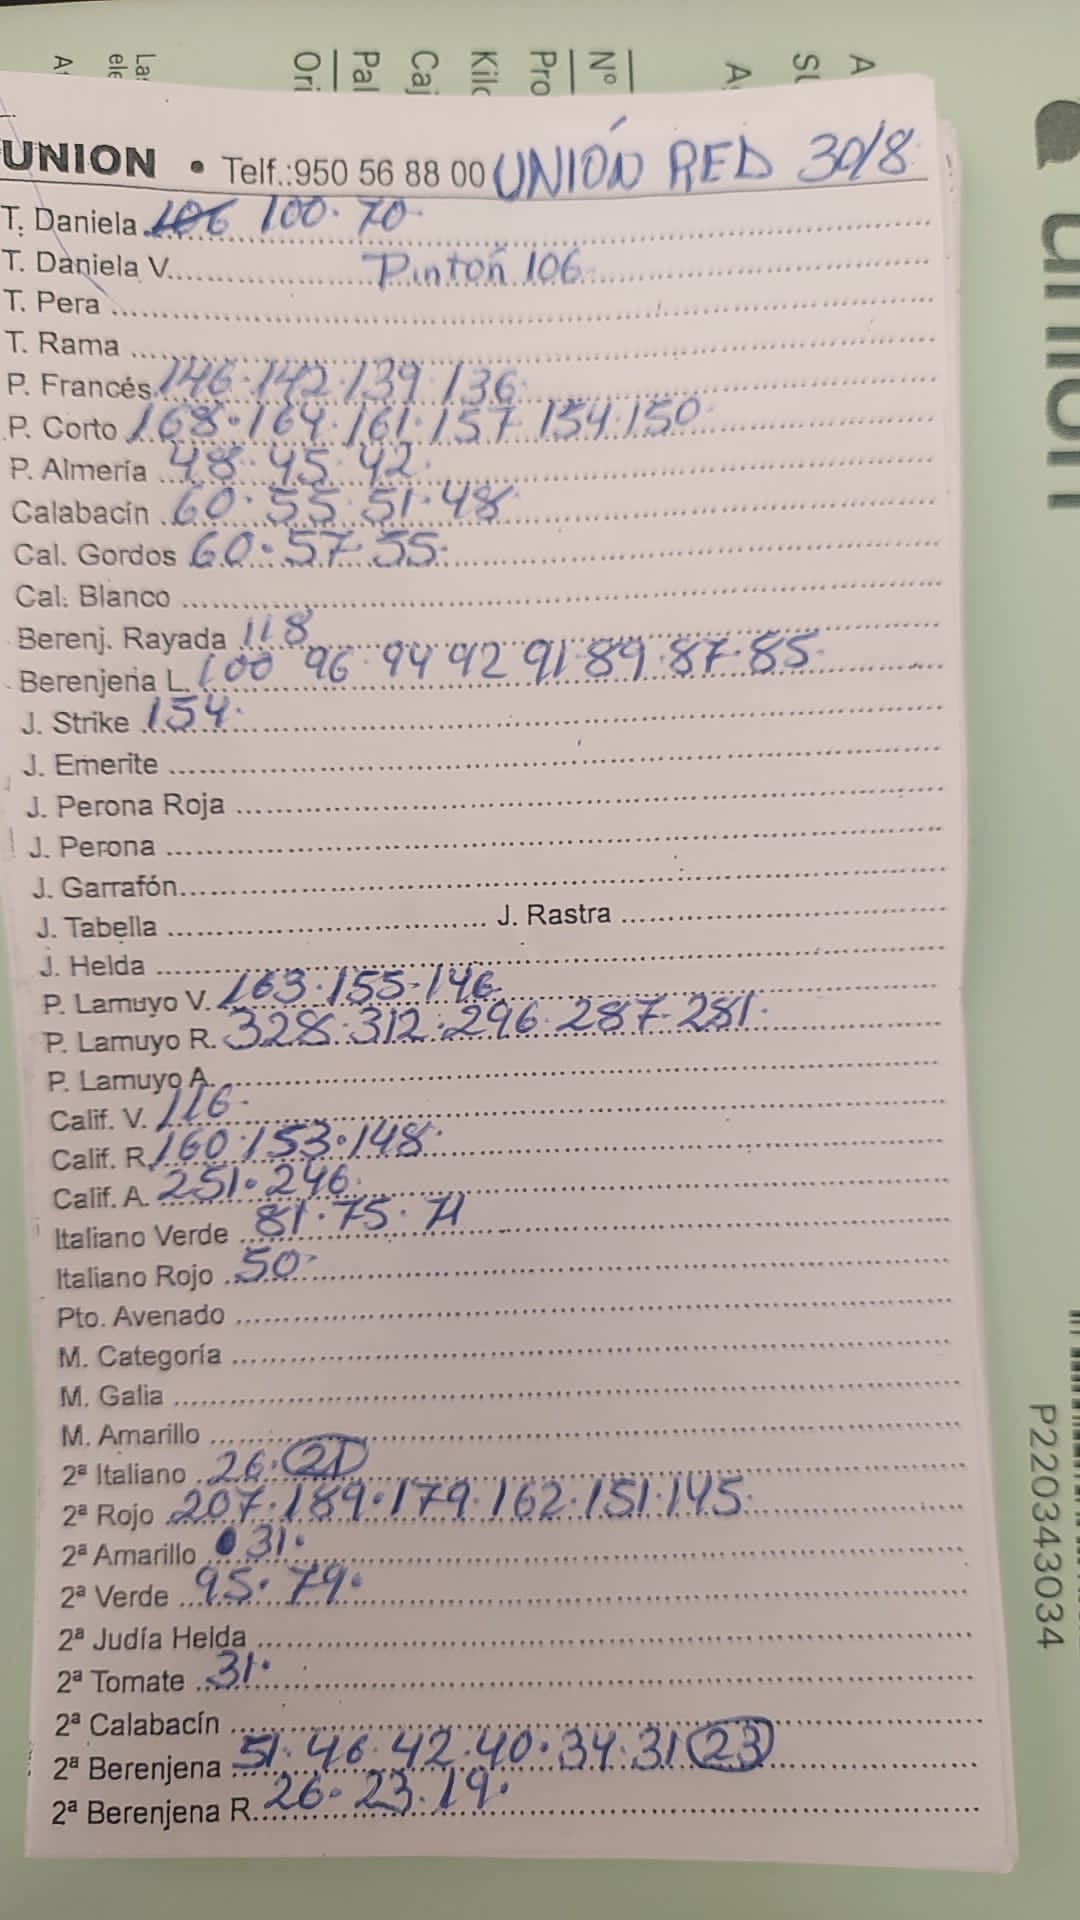 A
SU
A
Nº
Pro
Kilo
Caj
Pal
Ori
La
ele
A
UNION • Telf.:950 56 88 00 UNIÓN RED 30/8
T. Daniela 106 100. 70
T. Daniela V. Pinton 106
T. Pera
T. Rama
P. Francés 146.142.139.136
P. Corto 168.164.161.157 154.150
P. Almería 48.45.42
Calabacín 60.55.51.48
Cal. Gordos 60.57.55
Cal. Blanco
Berenj. Rayada 118
Berenjena L. 100 96.94 92 91.89.87.85
J. Strike 154
J. Emerite
J. Perona Roja
J. Perona
J. Garrafón
J. Tabella J. Rastra
J. Helda
P. Lamuyo V. 163.155.146
P. Lamuyo R. 328.312.296.287.281
P. Lamuyo A.
Calif. V. 116
Calif. R. 160.153.148
Calif. A. 251.246
Italiano Verde 81.75.71
Italiano Rojo 50
Pto. Avenado
M. Categoría
M. Galia
M. Amarillo
2ª Italiano 26.21
2ª Rojo 207.189.179.162.151.145
2ª Amarillo 31.
2ª Verde 95.79.
2ª Judía Helda
2ª Tomate 31.
2ª Calabacín
2ª Berenjena 51.46.42.40.34.31 23
2ª Berenjena R. 26.23.19.
union
P220343034